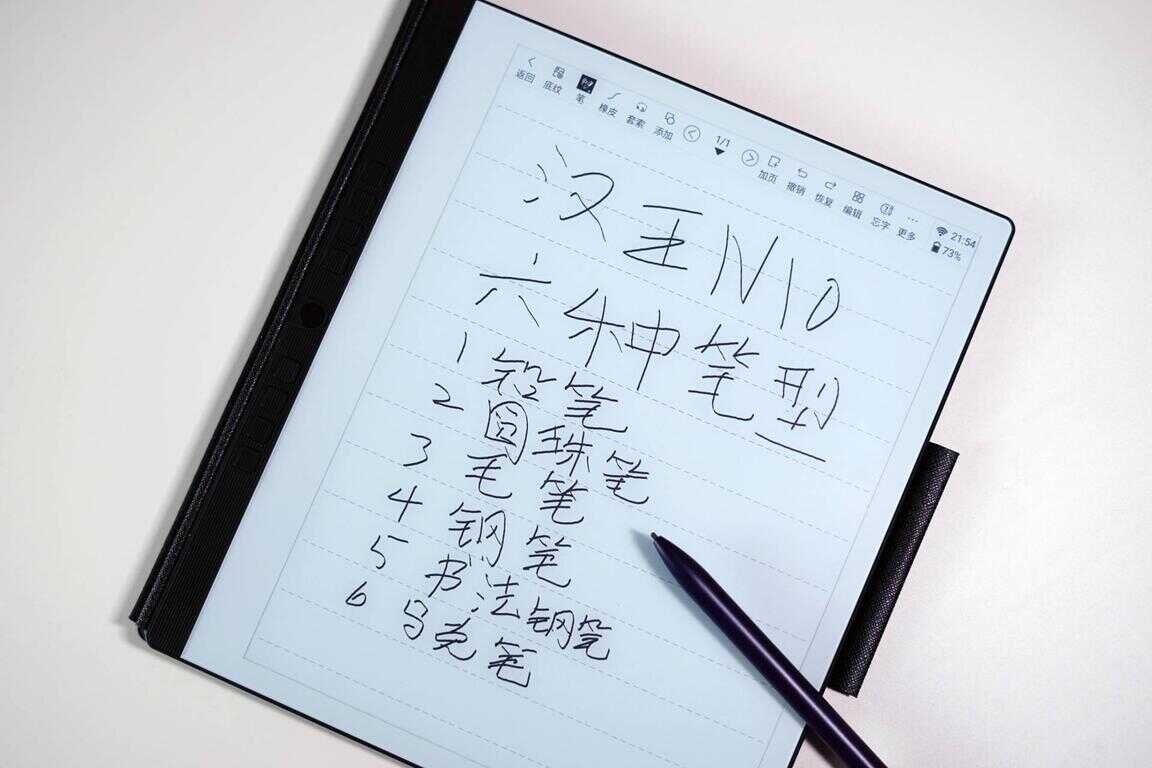 返回 底纹 笔 橡皮 套索 添加 1/1 加页 撤销 恢复 编辑 忘字 更多 21:54 73%
汉王N10
六种笔型
1 铅笔
2 圆珠笔
3 毛笔
4 钢笔
5 书法钢笔
6 马克笔